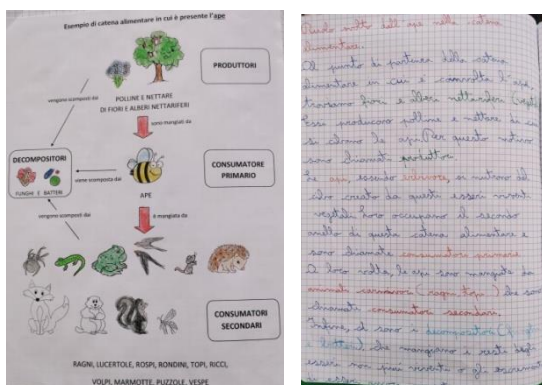 Esempio di catena alimentare in cui è presente l'ape
PRODUTTORI
vengono scomposti da
POLLINE E NETTARE
DI FIORI E ALBERI NETTARIFERI
sono mangiati da
DECOMPOSITORI
FUNGHI E BATTERI
viene scomposta da
CONSUMATORE
PRIMARIO
APE
vengono scomposti dai
è mangiata da
CONSUMATORI
SECONDARI
RAGNI, LUCERTOLE, ROSPI, RONDINI, TOPI, RICCI,
VOLPI, MARMOTTE, PUZZOLE, VESPE
Ruolo svolto dall'ape nella catena
alimentare.
Il punto di partenza della catena
alimentare in cui è coinvolta l'ape,
troviamo fiori e alberi nettariferi
Essi producono polline e nettare di cui
si cibano le api. Per questo motivo
sono chiamati produttori.
Le api, essendo erbivore, si nutrono di
cibo creato da questi esseri viventi
vegetali. Loro occupano il secondo
anello di questa catena alimentare e
sono chiamate consumatori primari.
A loro volta, le api sono mangiate da
animali carnivori (ragni, topi) che sono
chiamati consumatori secondari.
Infine, ci sono i decompositori
e batteri) che mangiano i resti degli
esseri non più viventi o gli escrementi